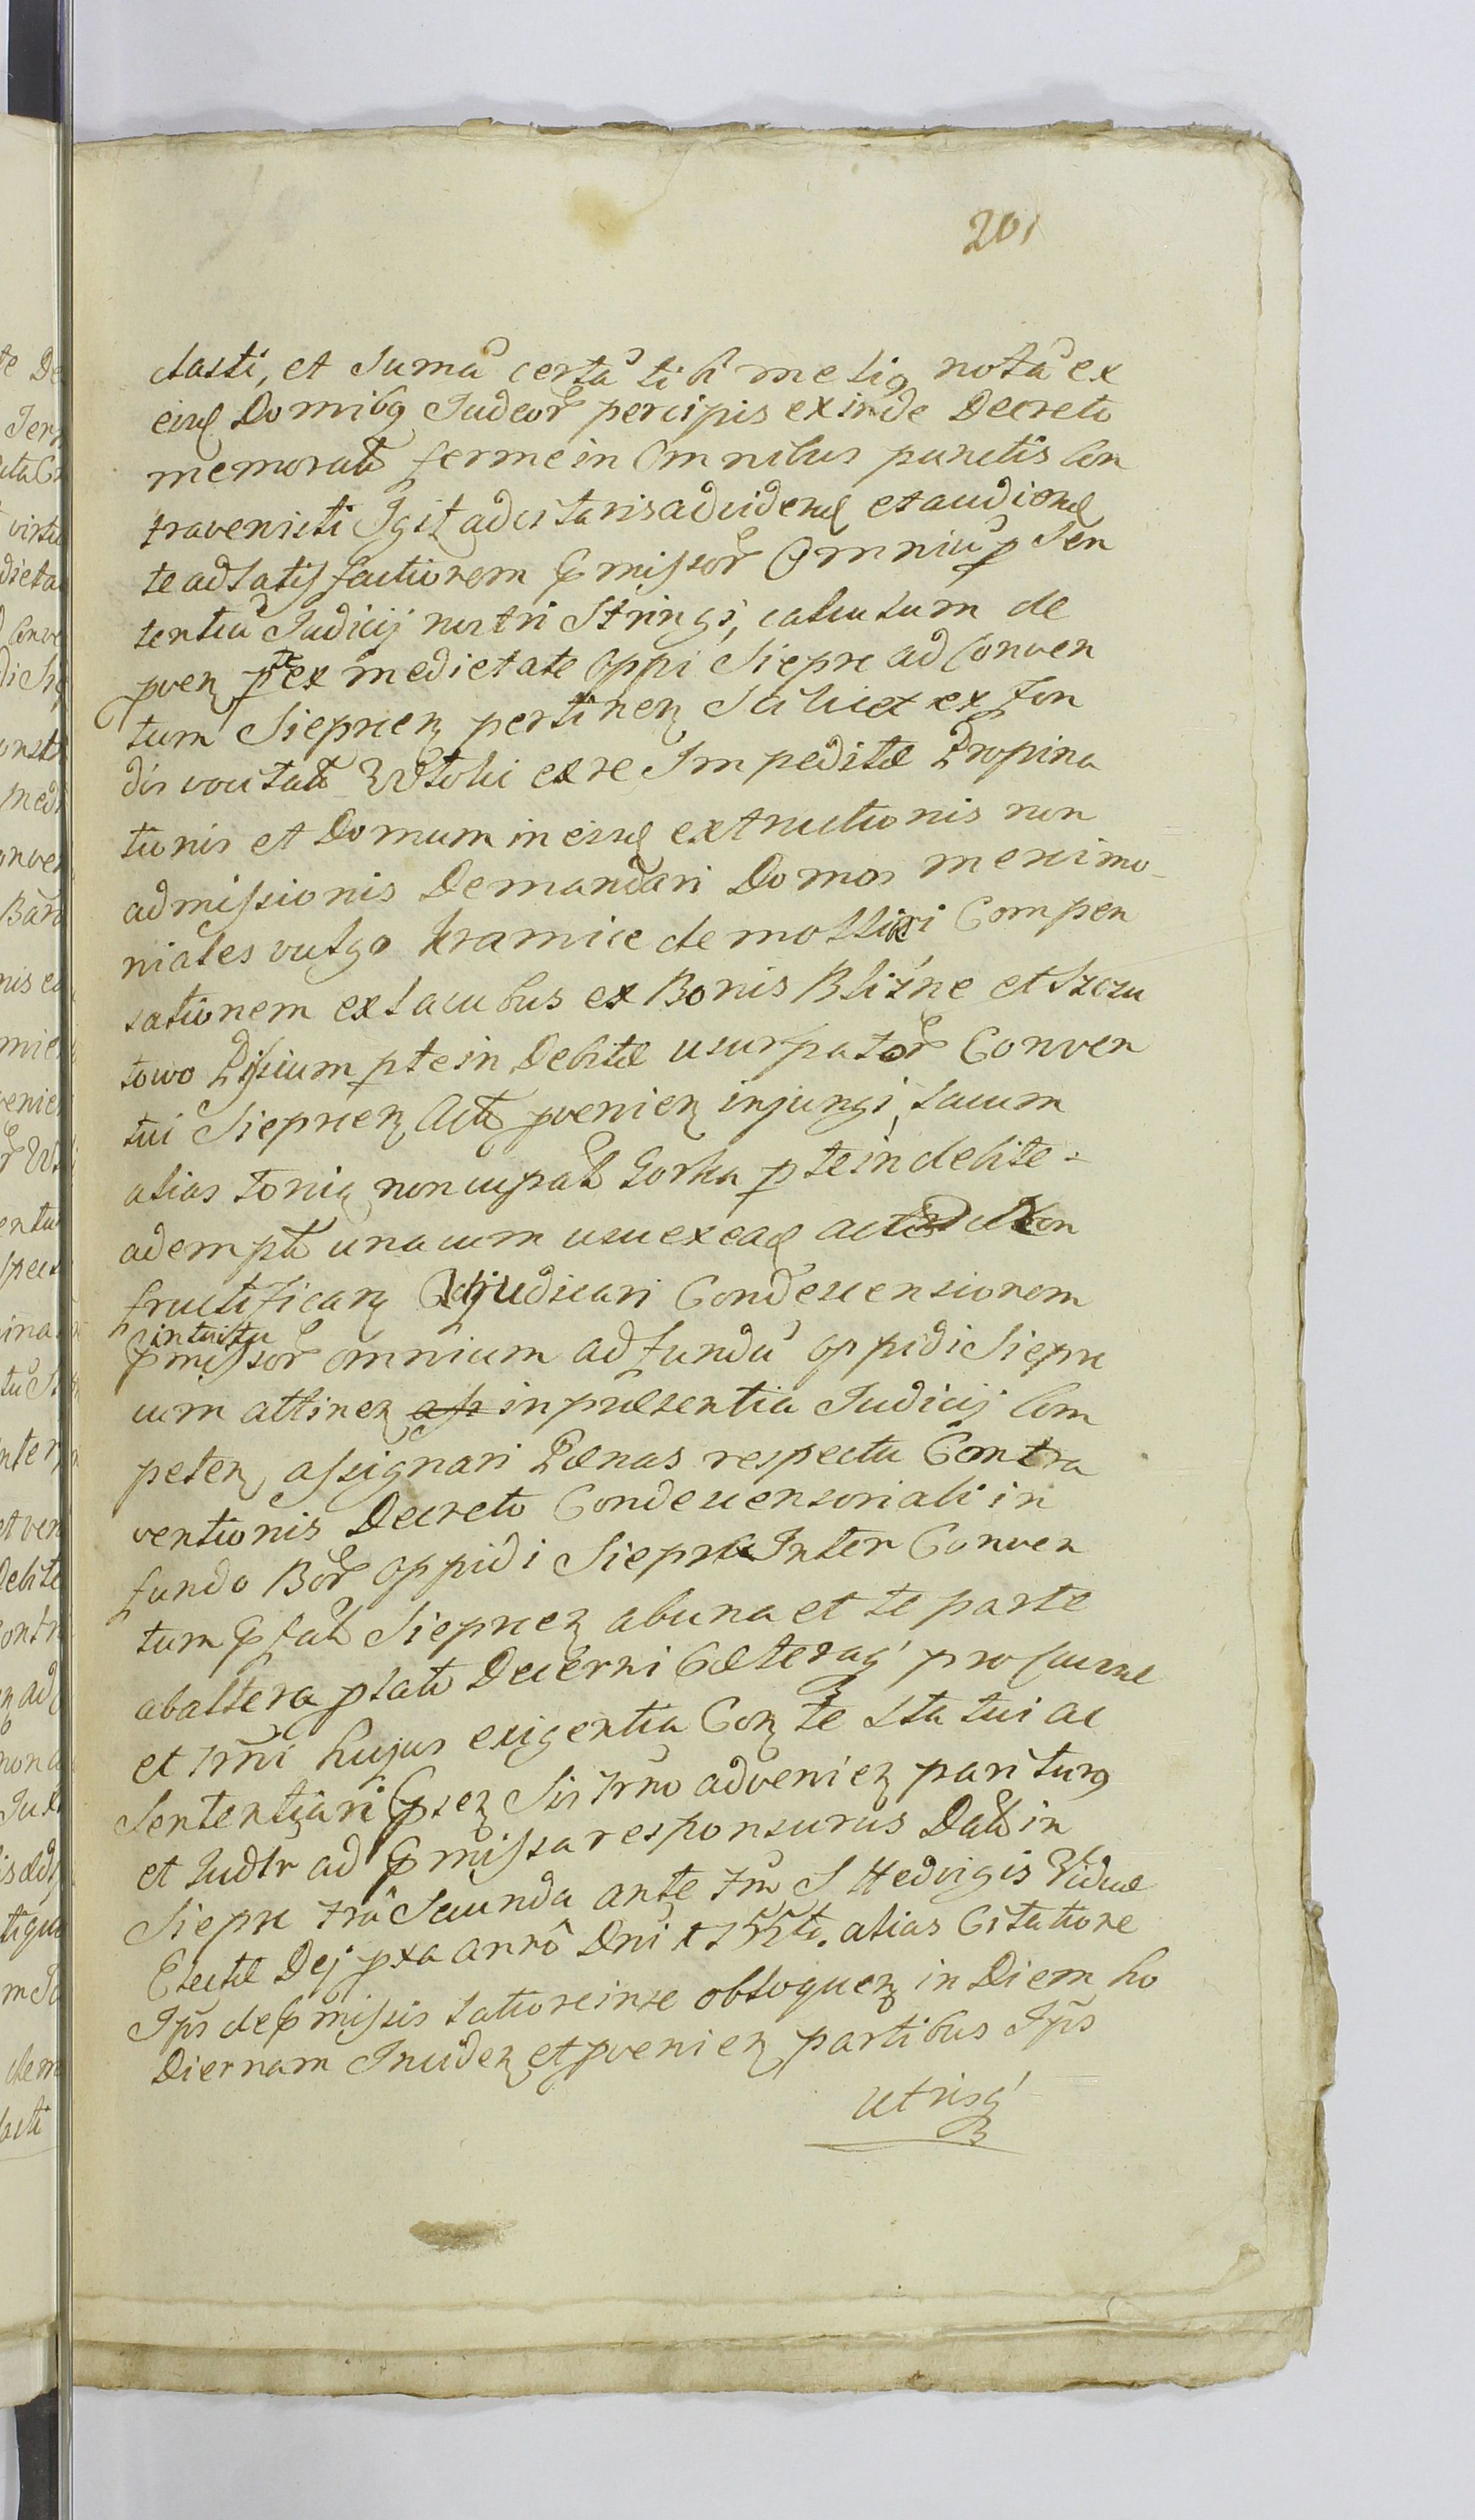 201
ctasti, et Sumã certã tibi melig notã ex
eisd Domibg Judeor percipis exinde Decreto
memorato ferme in Omnibus punctis Con
travenisti Igit adcitaris advidend et audiend
te ad satisfactionem pmissor Omniũ p Sen
tentiã Judicij nostri Stringi, calculum de
pven pte ex medietate Oppi Sieprc ad Conven
tum Sieprcen pertinen Scilicet ex fon
dis vocitato Wtoki ex re Impeditæ Propina
tionis et Domum in eisd extructionis non
admissionis Demandari Domos mercimo-
niales vulgo kramice demolliri Compen
sationem ex lacubus ex Bonis Blizne et Szczu
towo Piscium p te indebitæ usurpator Conven
tui Sieprcen Acto provenien injungi, lacum
alias tonia noncupato Gorka p te indebite
adempto una cum usu ex ead
fructifican Adjudicari Condescensionem
intuitu
pmissor omnium ad fundũ oppidi Sieprc
cum attinen in præsentia Judicij Com
peten, assignari Pænas respectu Contra
ventionis Decreto Condescensoriali in
fundo Bor oppidi Sieprc Inter Conven
tum pfato Sieprcen ab una et te parte
ab altera plato Decerni Cæteraq pro
et Trni hujus exigentia Con te statui ac
Sententiari psen Sis Trno advenien pariturg
et Judlr ad pmissa responsurus Dato in
Sieprc fria Secunda ante fm S Hedvigis Viduæ
Electæ Dej pxa annô Dni 1755to. alias Citatione
Ips de pmissis latiore inse obloquen in Diem ho
Diernam Inciden et provenien partibus Ips
utrisq